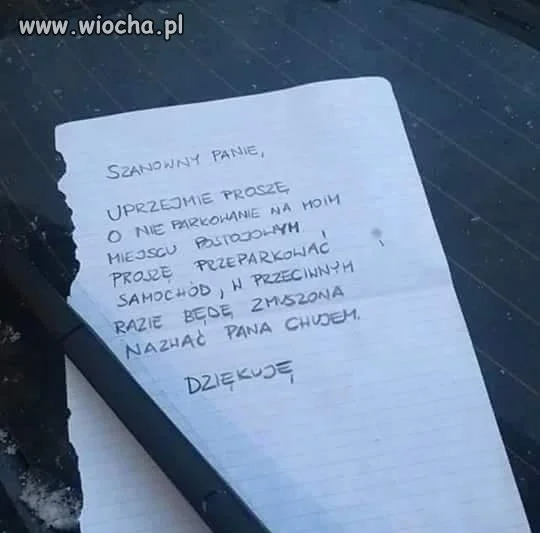 www.wiocha.pl
SZANOWNY PANIE,
UPRZEJMIE PROSZĘ
O NIE PARKOWANIE NA MOIM
MIEJSCU POSTOJOWYM I
PROSZĘ PRZEPARKOWAĆ
SAMOCHÓD, W PRZECIWNYM
RAZIE BĘDĘ ZMUSZONA
NAZWAĆ PANA CHUJEM.
DZIĘKUJĘ